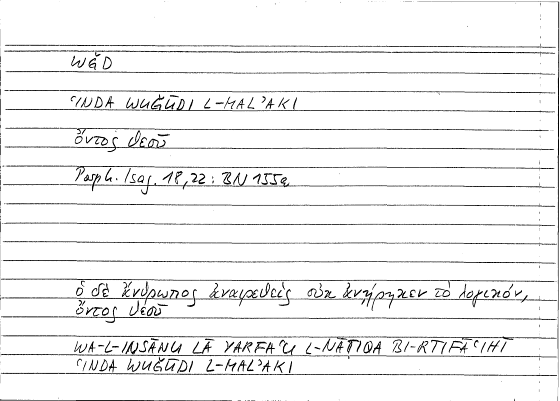 WǦD
ʿINDA WUǦŪDI L-MALʾAKI
ὄντος θεοῦ
Porph. Isag. 18,22: BN 155a
ὁ δὲ ἄνθρωπος ἀναιρεθεὶς οὐκ ἀνῄρηκεν τὸ λογικόν,
ὄντος θεοῦ
WA-L-INSĀNU LĀ YARFAʿU L-NĀṬIQA BI-RTIFĀʿIHĪ
ʿINDA WUǦŪDI L-MALʾAKI